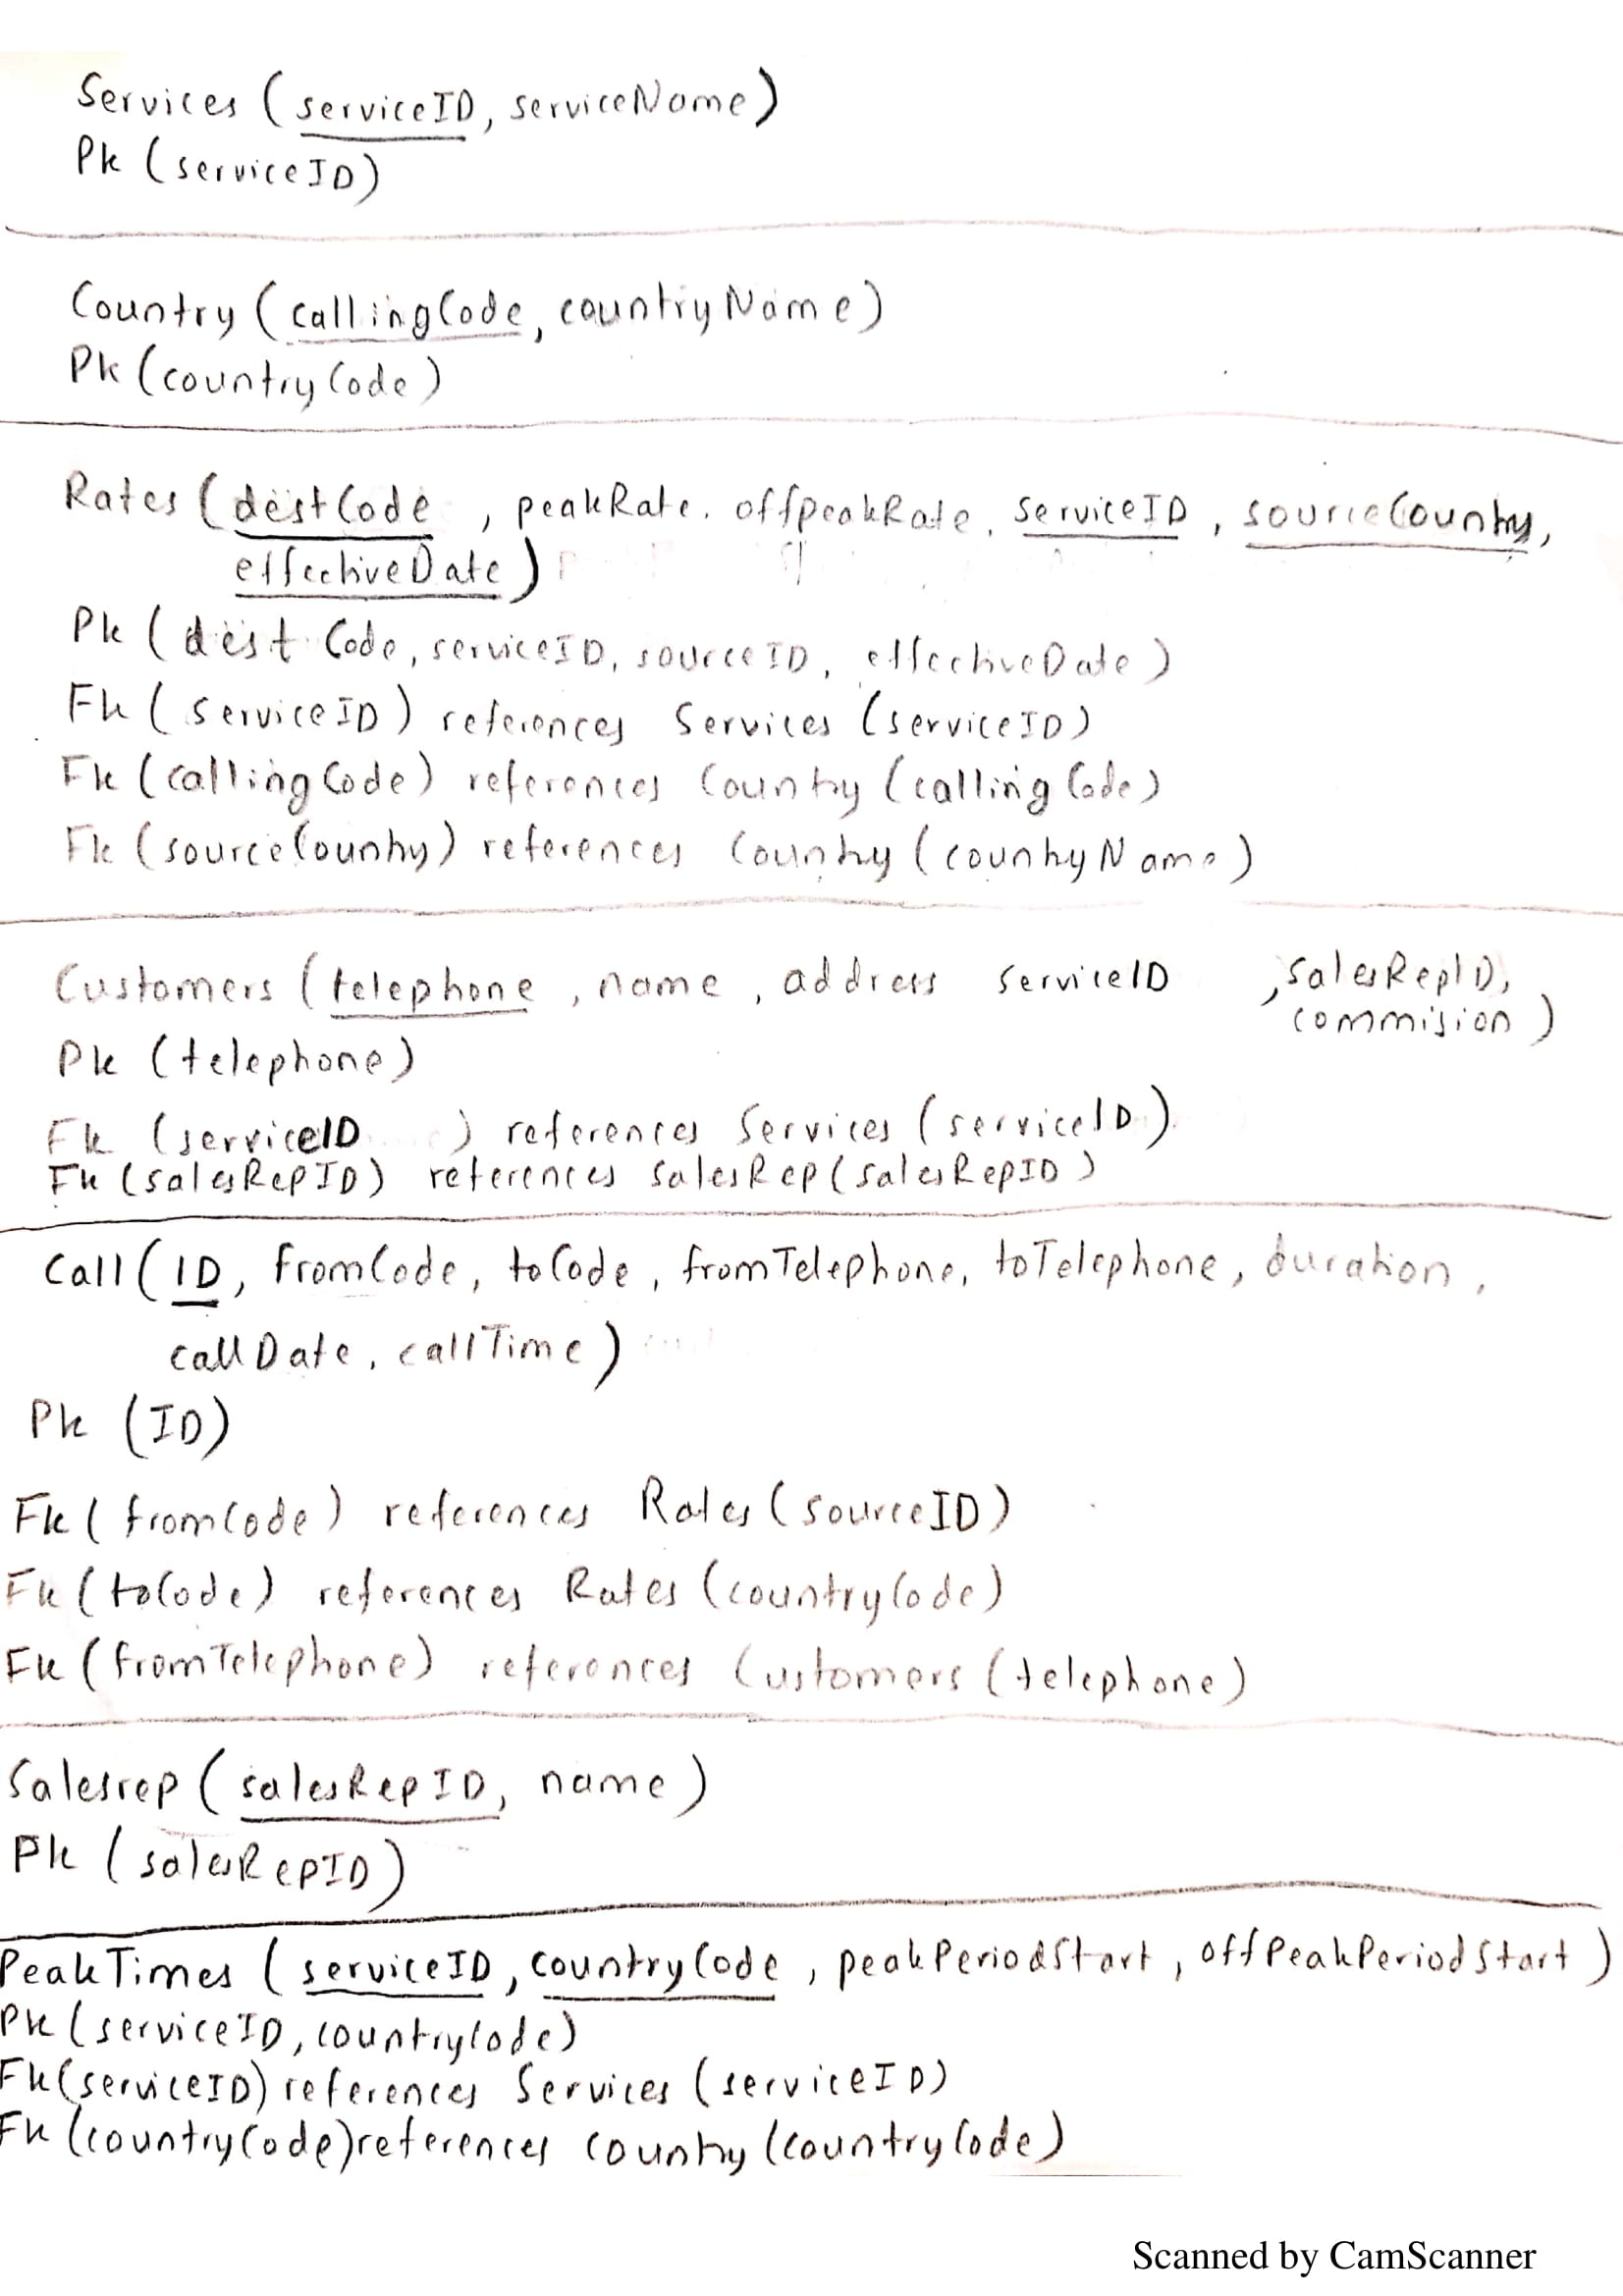 Services (serviceID, serviceName)
Pk (serviceID)
Country (callingCode, countryName)
Pk (countryCode)
Rates (destCode , peakRate, offpeakRate, serviceID , sourceCountry,
effectiveDate)
Pk (destCode, serviceID, sourceID, effectiveDate)
Fk (serviceID) references Services (serviceID)
Fk (callingCode) references Country (callingCode)
Fk (sourceCountry) references Country (countryName)
Customers (telephone , name , address serviceID , salesRepID,
commision )
Pk (telephone)
Fk (serviceID ) references Services (serviceID)
Fk (salesRepID) references SalesRep (salesRepID)
Call (ID, fromCode, toCode, fromTelephone, toTelephone, duration,
callDate, callTime)
Pk (ID)
Fk (fromCode) references Rates (sourceID)
Fk (toCode) references Rates (countryCode)
Fk (fromTelephone) references Customers (telephone)
Salesrep (salesRepID, name)
Pk (salesRepID)
PeakTimes (serviceID, countryCode , peakPeriodStart, offPeakPeriodStart)
Pk (serviceID, countryCode)
Fk (serviceID) references Services (serviceID)
Fk (countryCode) references Country (countryCode)
Scanned by CamScanner